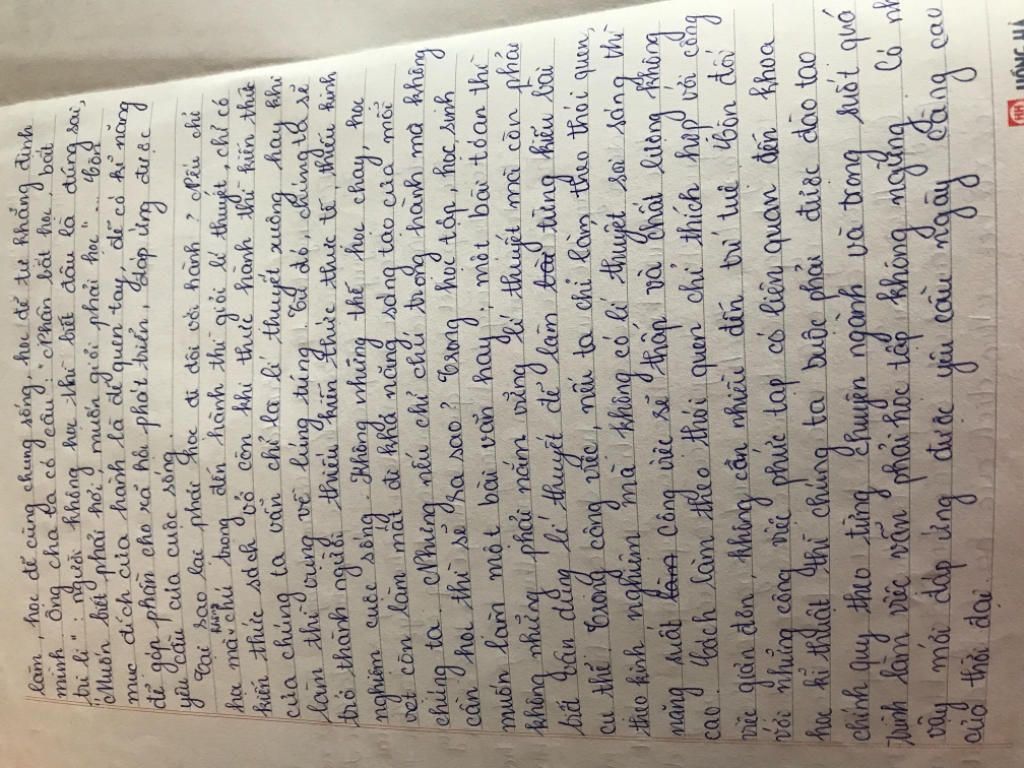 làm, học để cùng chung sống, học để tự khẳng định
mình. Ông cha ta có câu: "Nhân bất học, bất
tri lí": người không học thì biết đâu là đúng sai,
"Muốn biết phải hỏi, muốn giỏi phải học"... Còn
mục đích của hành là để quen tay, để có kĩ năng
để góp phần cho xã hội phát triển, đáp ứng được
yêu cầu của cuộc sống.
Tại sao lại phải học đi đôi với hành? Nếu chỉ
học mà không chú trọng đến hành thì giỏi lí thuyết, chỉ có
kiến thức sách vở còn khi thực hành thì kiến thức
của chúng ta vẫn chỉ là lí thuyết xuông hay khi
làm thì vụng về lúng túng. Từ đó, chúng ta sẽ
trở thành người thiếu kiến thức thực tế, thiếu kinh
nghiệm cuộc sống. Không những thế học chay, học
vẹt còn làm mất đi khả năng sáng tạo của mỗi
chúng ta. Nhưng nếu chỉ chú trọng hành mà không
cần học thì sẽ ra sao? Trong học tập, học sinh
muốn làm một bài văn hay, một bài toán thì
không những phải nắm vững lí thuyết mà còn phải
biết vận dụng lí thuyết để làm từng kiểu bài
cụ thể. Trong công việc, nếu ta chỉ làm theo thói quen,
theo kinh nghiệm mà không có lí thuyết soi sáng thì
năng suất công việc sẽ thấp và chất lượng không
cao. Cách làm theo thói quen chỉ thích hợp với công
việc giản đơn, không cần nhiều đến trí tuệ. Còn đối
với những công việc phức tạp có liên quan đến khoa
học kĩ thuật thì chúng ta buộc phải được đào tạo
chính quy theo từng chuyên ngành và trong suốt quá
trình làm việc vẫn phải học tập không ngừng. Có nh
vậy mới đáp ứng được yêu cầu ngày càng cao
của thời đại.
HỒNG HÀ